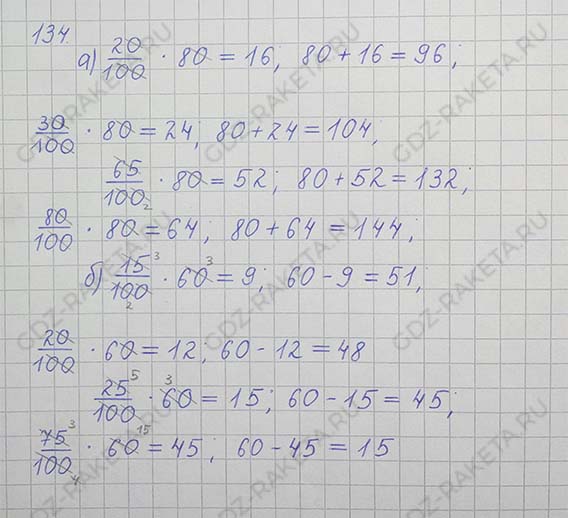 134.
а) 20/100 · 80 = 16; 80 + 16 = 96;
30/100 · 80 = 24; 80 + 24 = 104;
65/100 2 · 80 = 52; 80 + 52 = 132;
80/100 · 80 = 64; 80 + 64 = 144;
б) 15 3/100 2 · 60 3 = 9; 60 - 9 = 51;
20/100 · 60 = 12; 60 - 12 = 48
25 5/100 · 3 60 = 15; 60 - 15 = 45;
75 3/100 4 · 60 15 = 45; 60 - 45 = 15
GDZ-RAKETA.RU